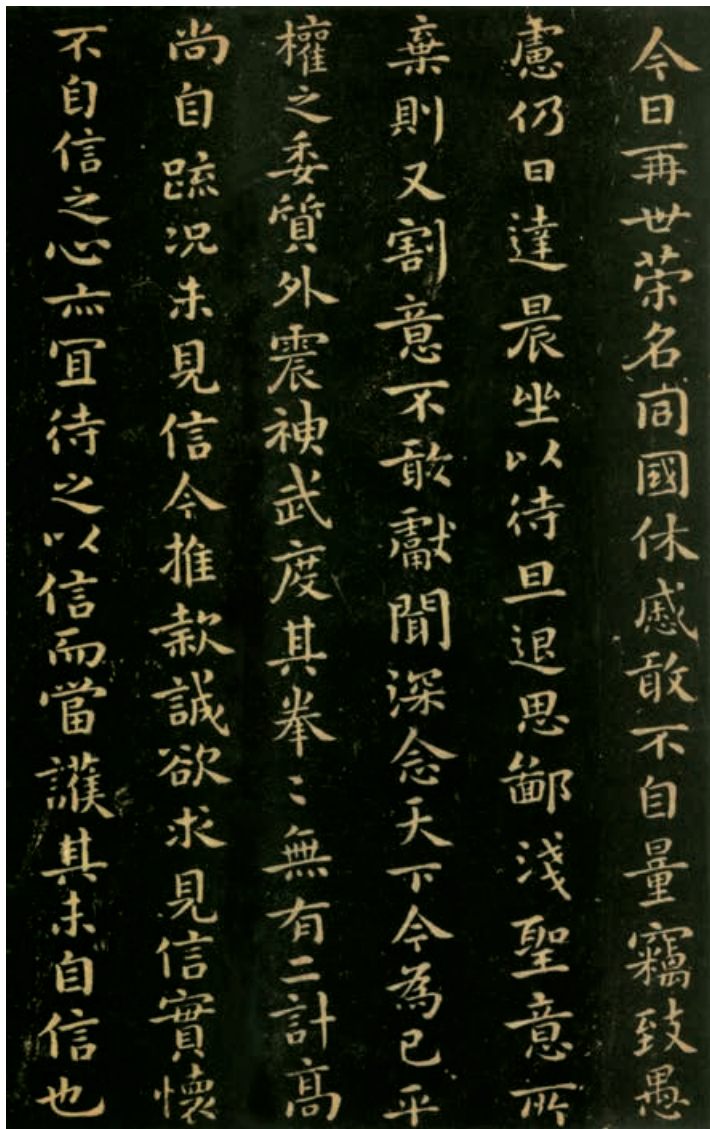 今日再世荣名同國休慼敢不自量竊致愚
慮仍日達晨坐以待旦退思鄙淺聖意所
棄則又割意不敢獻聞深念天下今為已平
權之委質外震神武度其拳〻無有二計高
尚自疏况未見信今推款誠欲求見信實懷
不自信之心亦冝待之以信而當護其未自信也